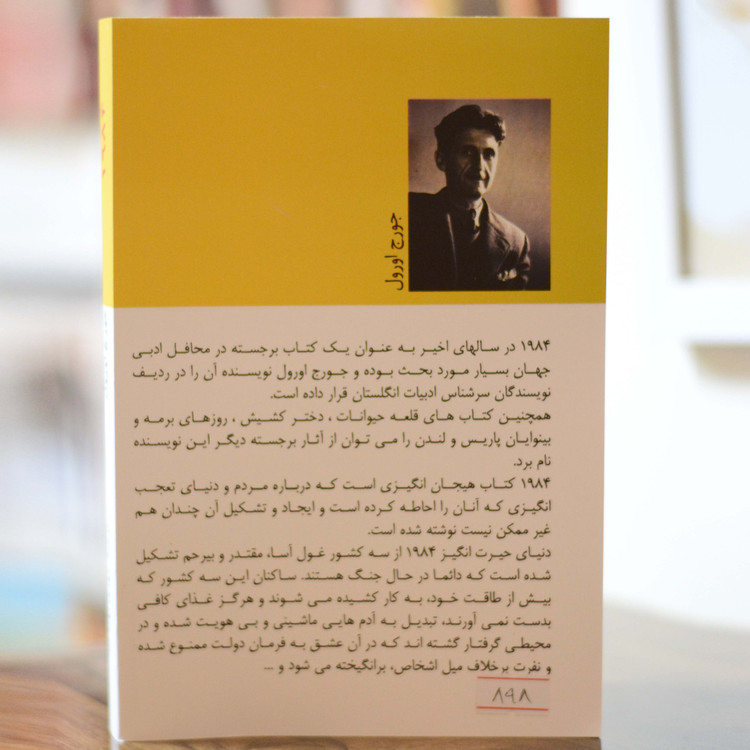 ۱۹۸۴
جورج اورول
۱۹۸۴ در سالهای اخیر به عنوان یک کتاب برجسته در محافل ادبی
جهان بسیار مورد بحث بوده و جورج اورول نویسنده آن را در ردیف
نویسندگان سرشناس ادبیات انگلستان قرار داده است.
همچنین کتاب های قلعه حیوانات ، دختر کشیش ، روزهای برمه و
بینوایان پاریس و لندن را می توان از آثار برجسته دیگر این نویسنده
نام برد.
۱۹۸۴ کتاب هیجان انگیزی است که درباره مردم و دنیای تعجب
انگیزی که آنان را احاطه کرده است و ایجاد و تشکیل آن چندان هم
غیر ممکن نیست نوشته شده است.
دنیای حیرت انگیز ۱۹۸۴ از سه کشور غول آسا، مقتدر و بیرحم تشکیل
شده است که دائما در حال جنگ هستند. ساکنان این سه کشور که
بیش از طاقت خود، به کار کشیده می شوند و هرگز غذای کافی
بدست نمی آورند، تبدیل به آدم هایی ماشینی و بی هویت شده و در
محیطی گرفتار گشته اند که در آن عشق به فرمان دولت ممنوع شده
و نفرت برخلاف میل اشخاص، برانگیخته می شود و ...
۸۹۸